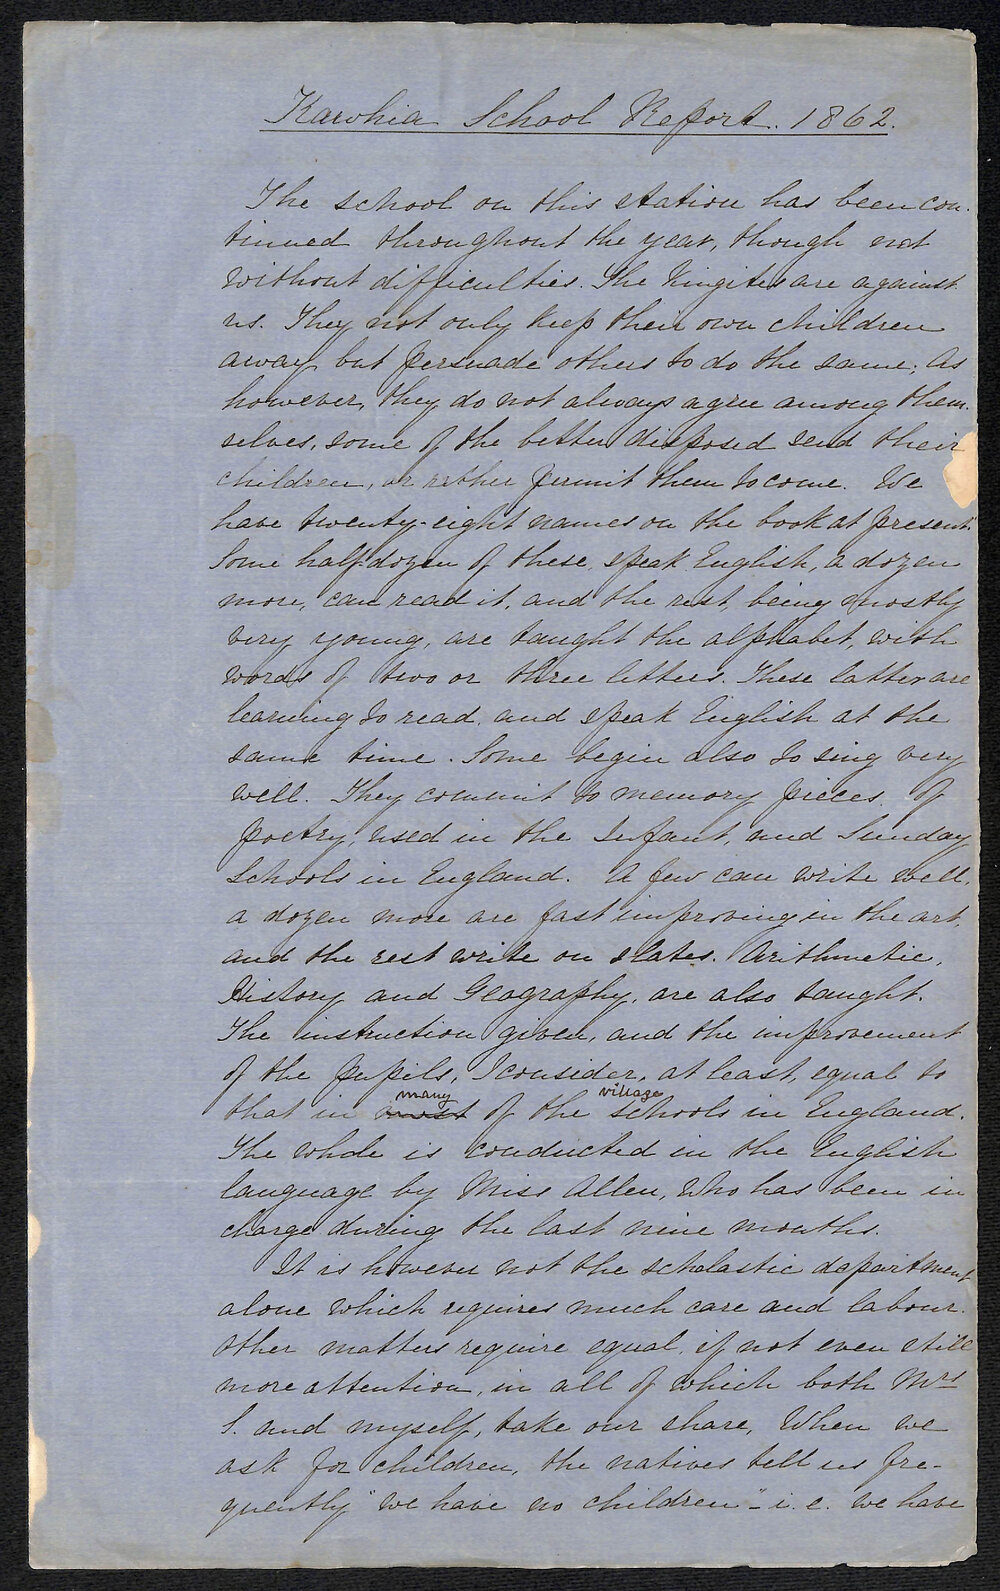 Kawhia School Report. 1862.
The school on this station has been con-
tinued throughout the year, though not
without difficulties. The Kingites are against
us. They not only keep their own children
away but persuade others to do the same; As
however, they do not always agree among them-
selves, some of the better disposed send their
children, or rather permit them to come. We
have twenty-eight names on the book at present.
Some half dozen of these, speak English, a dozen
more, can read it, and the rest, being mostly
very young, are taught the alphabet, with
words of two or three letters. These latter are
learning to read and speak English at the
same time. Some begin also to sing very
well. They commit to memory pieces of
poetry, used in the Infant, and Sunday
Schools in England. A few can write well,
a dozen more are fast improving in the art,
and the rest write on slates. Arithmetic,
History and Geography, are also taught.
The instruction given, and the improvement
of the pupils, I consider, at least, equal to
many village
that in most of the schools in England.
The whole is conducted in the English
language by Miss Allen, who has been in
charge during the last nine months.
It is however not the scholastic department
alone which requires much care and labour.
Other matters require equal, if not even still
more attention, in all of which both Mrs
S. and myself, take our share, When we
ask for children, the natives tell us fre-
quently "we have no children" - i.e. we have